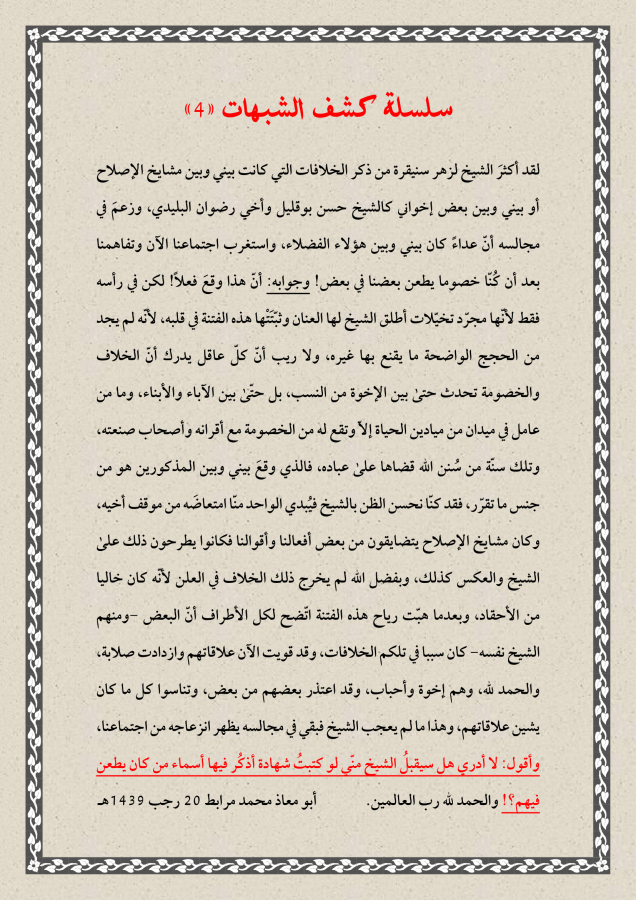 سلسلة كشف الشبهات «4»
لقد أكثرَ الشيخ لزهر سنيقرة من ذكر الخلافات التي كانت بيني وبين مشايخ الإصلاح
أو بيني وبين بعض إخواني كالشيخ حسن بوقليل وأخي رضوان البليدي، وزعمَ في
مجالسه أنّ عداءً كان بيني وبين هؤلاء الفضلاء، واستغرب اجتماعنا الآن وتفاهمنا
بعد أن كُنّا خصوما يطعن بعضنا في بعض! وجوابه: أنّ هذا وقعَ فعلاً! لكن في رأسه
فقط لأنّها مجرّد تخيّلات أطلق الشيخ لها العنان وثبّتَتْها هذه الفتنة في قلبه، لأنّه لم يجد
من الحجج الواضحة ما يقنع بها غيره، ولا ريب أنّ كلّ عاقل يدرك أنّ الخلاف
والخصومة تحدث حتىٰ بين الإخوة من النسب، بل حتّىٰ بين الآباء والأبناء، وما من
عامل في ميدان من ميادين الحياة إلاّ وتقع له من الخصومة مع أقرانه وأصحاب صنعته،
وتلك سنّة من سُنن الله قضاها علىٰ عباده، فالذي وقعَ بيني وبين المذكورين هو من
جنس ما تقرّر، فقد كنّا نحسن الظن بالشيخ فيُبدي الواحد منّا امتعاضَه من موقف أخيه،
وكان مشايخ الإصلاح يتضايقون من بعض أفعالنا وأقوالنا فكانوا يطرحون ذلك علىٰ
الشيخ والعكس كذلك، وبفضل الله لم يخرج ذلك الخلاف في العلن لأنّه كان خاليا
من الأحقاد، وبعدما هبّت رياح هذه الفتنة اتّضح لكل الأطراف أنّ البعض -ومنهم
الشيخ نفسه- كان سببا في تلكم الخلافات، وقد قويت الآن علاقاتهم وازدادت صلابة،
والحمد لله، وهم إخوة وأحباب، وقد اعتذر بعضهم من بعض، وتناسوا كل ما كان
يشين علاقاتهم، وهذا ما لم يعجب الشيخ فبقي في مجالسه يظهر انزعاجه من اجتماعنا،
وأقول: لا أدري هل سيقبلُ الشيخ منّي لو كتبتُ شهادة أذكُر فيها أسماء من كان يطعن
فيهم؟! والحمد لله رب العالمين. أبو معاذ محمد مرابط 20 رجب 1439هـ